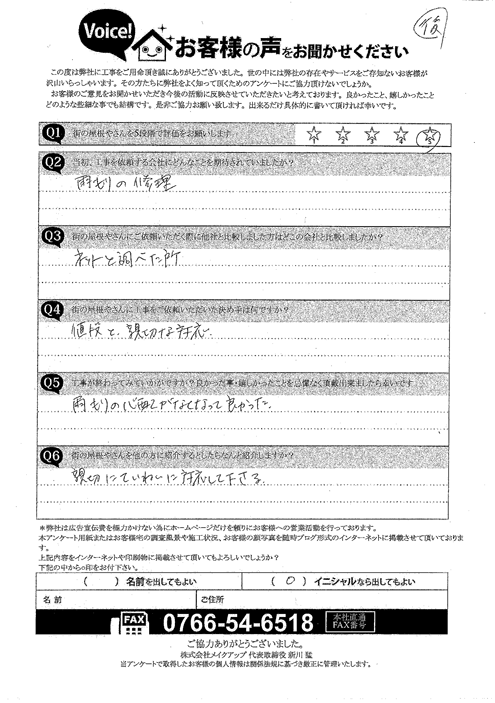 後
Voice!
お客様の声をお聞かせください
この度は弊社に工事をご用命頂き誠にありがとうございました。世の中には弊社の存在やサービスをご存知ないお客様が
沢山いらっしゃいます。その方たちに弊社をよく知って頂くためのアンケートにご協力頂けないでしょうか。
お客様のご意見をお聞かせいただき今後の活動に反映させていただきたいと考えております。良かったこと、嬉しかったこと
どのような些細な事でも結構です。是非ご協力お願い致します。出来るだけ具体的に書いて頂ければ幸いです。
Q1 街の屋根やさんを5段階で評価をお願いします
1 2 3 4 5
Q2 当初、工事を依頼する会社にどんなことを期待されていましたか？
雨もりの修理
Q3 街の屋根やさんにご依頼いただく際に他社と比較しました方はどこの会社と比較しましたか？
ネットと調べた所
Q4 街の屋根やさんに工事をご依頼いただいた決め手は何ですか？
値段と、親切な対応
Q5 工事が終わってみていかがですか？良かった事・嬉しかったことを忌憚なく頂戴出来ましたら幸いです
雨もりの心配がなくなって良かった。
Q6 街の屋根やさんを他の方に紹介するとしたらなんと紹介しますか？
親切にていねいに対応して下さる。
＊弊社は広告宣伝費を極力かけない為にホームページだけを頼りにお客様への営業活動を行っております。
本アンケート用紙またはお客様宅の調査風景や施工状況、お客様の顔写真を随時ブログ形式のインターネットに掲載させて頂いております。
上記内容をインターネットや印刷物に掲載させて頂いてもよろしいでしょうか？
下記の中から○印をお付下さい。
（　　）名前を出してもよい
（ ○ ）イニシャルなら出してもよい
名前
ご住所
FAX 0766-54-6518 本社直通FAX番号
ご協力ありがとうございました。
株式会社メイクアップ 代表取締役 新川 猛
※アンケートで取得したお客様の個人情報は関係法規に基づき厳正に管理いたします。